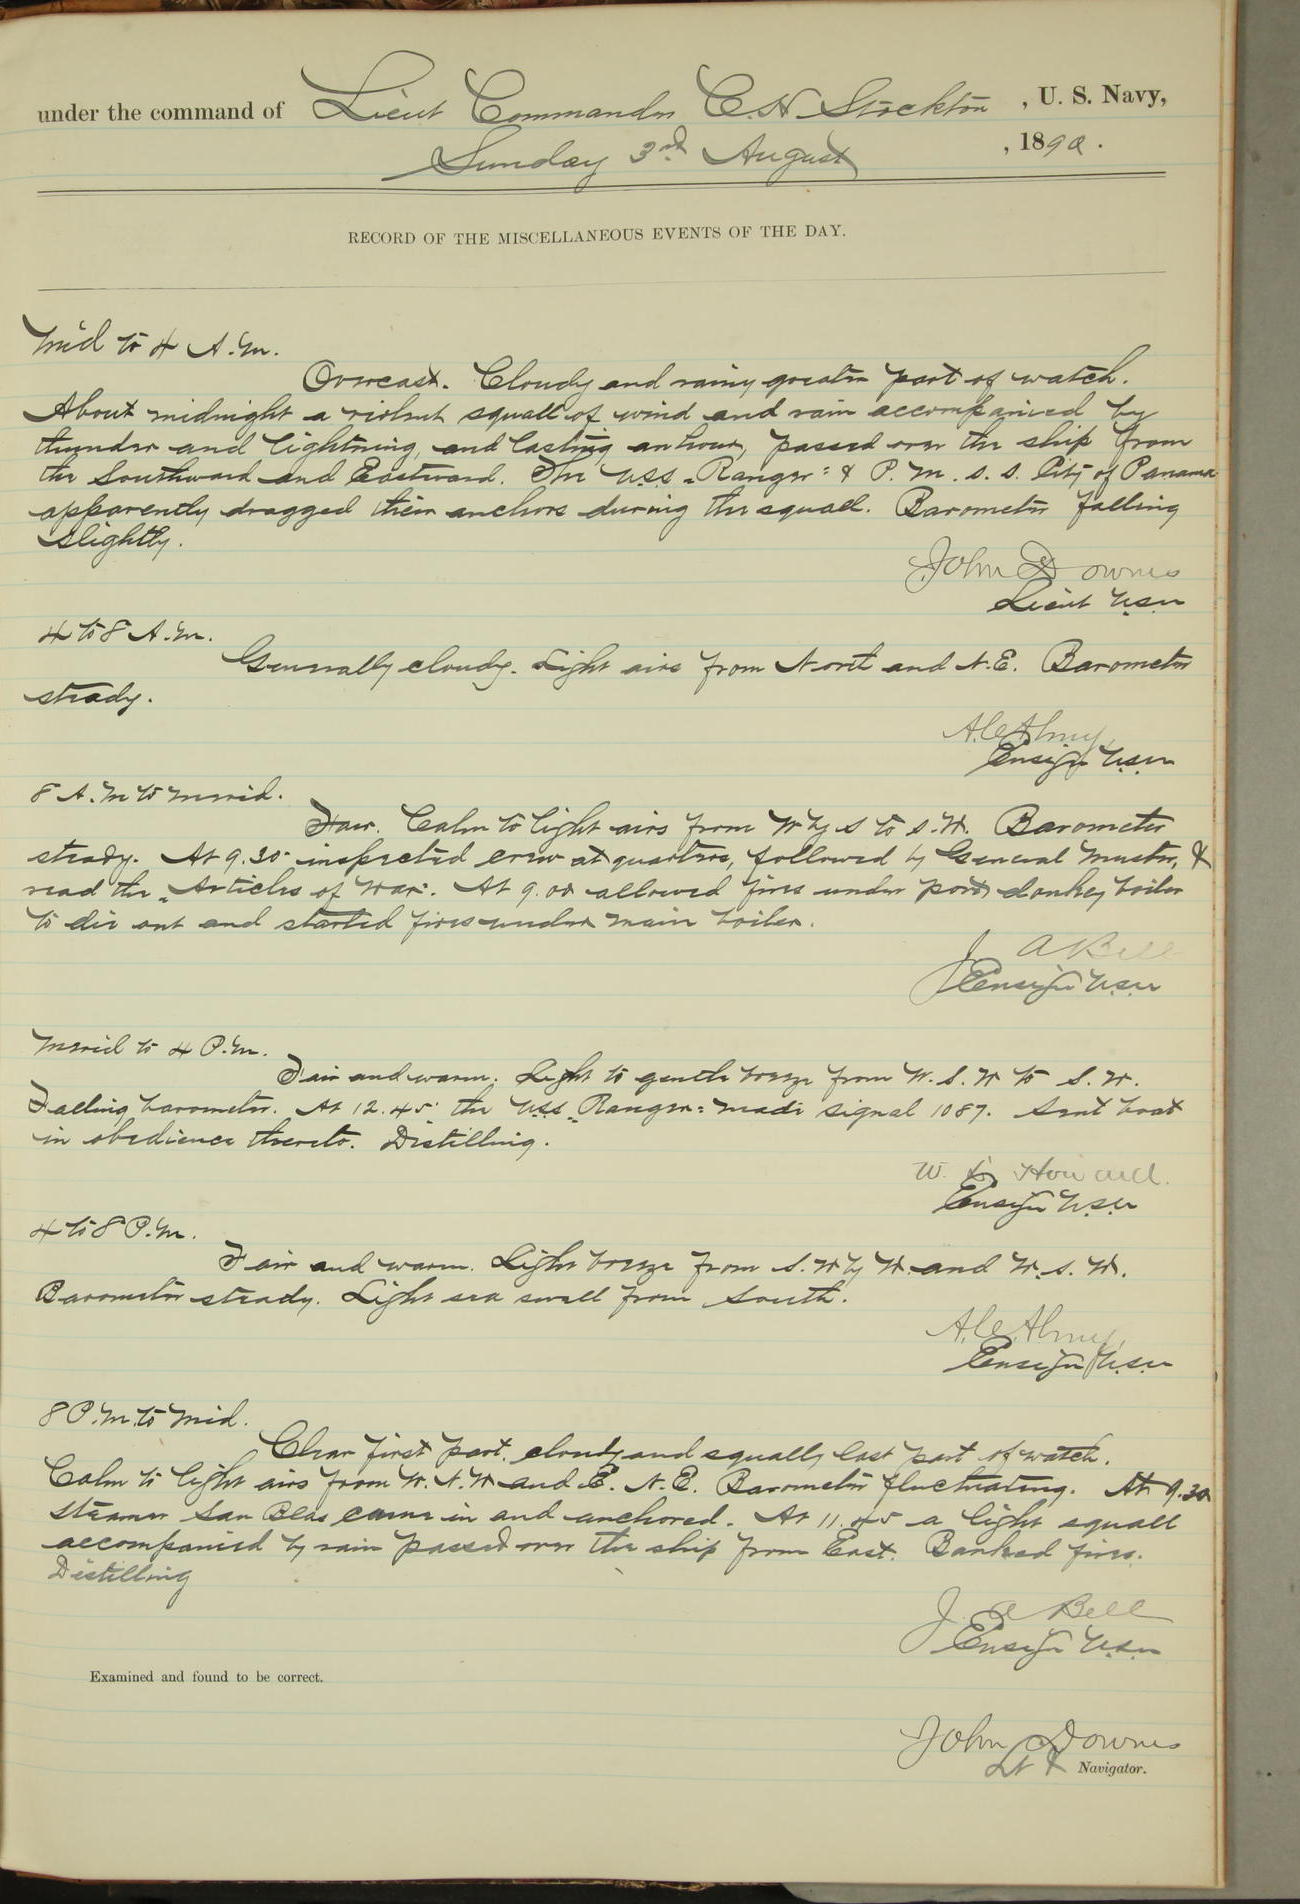 under the command of Lieut Commander C.H. Stockton, U. S. Navy,
Sunday 3rd August, 1890.
RECORD OF THE MISCELLANEOUS EVENTS OF THE DAY.
Mid to 4 A.M.
Overcast. Cloudy and rainy greater part of watch.
About midnight a violent squall of wind and rain accompanied by
thunder and lightning, and lasting an hour, passed over the ship from
the Southward and Eastward. The U.S.S. "Ranger" & P. M. S. S. City of Panama
apparently dragged their anchors during the squall. Barometer falling
slightly.
John Downes
Lieut U.S.N.
4 to 8 A.M.
Generally cloudy. Light airs from North and N.E. Barometer
steady.
A.C. Almy,
Ensign U.S.N.
8 A.M to Merid.
Fair. Calm to light airs from W by S to S.W. Barometer
steady. At 9.30 inspected crew at quarters, followed by General Muster, &
read the "Articles of War". At 9.00 allowed fires under port donkey boiler
to die out and started fires under main boiler.
J. A Bell
Ensign U.S.N.
Merid to 4 P.M.
Fair and warm. Light to gentle breeze from W. S. W to S. W.
Falling barometer. At 12.45 the U.S.S. "Ranger" made signal 1087. Sent boat
in obedience thereto. Distilling.
W. L. Howard.
Ensign U.S.N.
4 to 8 P.M.
Fair and warm. Light breeze from S. W by W. and W. S. W.
Barometer steady. Light sea swell from South.
A.C. Almy,
Ensign U.S.N.
8 P.M. to Mid.
Clear first part, cloudy and squally last part of watch.
Calm to light airs from W. N. W and E. N. E. Barometer fluctuating. At 9.30
steamer San Blas came in and anchored. At 11.45 a light squall
accompanied by rain passed over the ship from East. Banked fires.
Distilling
J. A Bell
Ensign U.S.N.
Examined and found to be correct.
John Downes
Lt & Navigator.